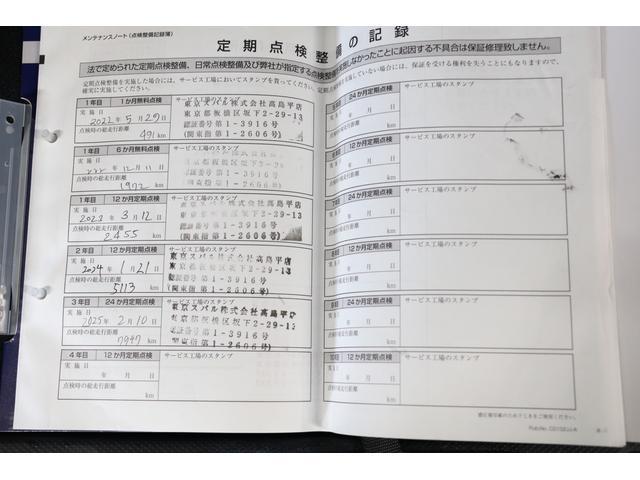 メンテナンスノート（点検整備記録簿）
定期点検整備の記録
法で定められた定期点検整備、日常点検整備及び弊社が指定する点検整備を実施しなかったことに起因する不具合は保証修理致しません。
定期点検整備を実施した場合には、サービス工場においてスタンプを貰ってください。
確実に実施してください。
1年目 1か月無料点検
サービス工場のスタンプ
実施日
2022年5月29日
点検時の総走行距離
491 km
東京スバル株式会社高島平店
東京都板橋区坂下2-29-13
認証番号第1-3916号
(関東指第1-2606号)
1年目 6か月無料点検
サービス工場のスタンプ
年12月11日
点検時の総走行距離
1972 km
第1-3916号
(関東指第1-2606号)
1年目 12か月定期点検
サービス工場のスタンプ
実施日
2023年3月12日
点検時の総走行距離
2455 km
東京スバル株式会社高島平店
東京都板橋区坂下2-29-13
認証番号第1-3916号
(関東指第1-2606号)
2年目 12か月定期点検
サービス工場のスタンプ
実施日
2024年1月21日
点検時の総走行距離
5113 km
東京スバル株式会社高島平店
東京都板橋区坂下2-29-13
認証番号第1-3916号
(関東指第1-2606号)
3年目 24か月定期点検
サービス工場のスタンプ
実施日
2025年2月10日
点検時の総走行距離
7947 km
東京スバル株式会社高島平店
東京都板橋区坂下2-29-13
認証番号第1-3916号
(関東指第1-2606号)
4年目 12か月定期点検
サービス工場のスタンプ
実施日
年 月 日
点検時の総走行距離
km
24か月定期点検
サービス工場のスタンプ
年 月 日
点検時の総走行距離
km
12か月定期点検
サービス工場のスタンプ
年 月 日
点検時の総走行距離
km
24か月定期点検
サービス工場のスタンプ
年 月 日
点検時の総走行距離
km
12か月定期点検
サービス工場のスタンプ
年 月 日
点検時の総走行距離
km
24か月定期点検
サービス工場のスタンプ
年 月 日
点検時の総走行距離
km
10年目 12か月定期点検
サービス工場のスタンプ
年 月 日
点検時の総走行距離
km